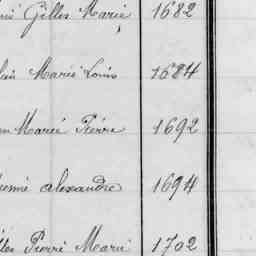 Gilles Marie 1682
Marie Louis 1684
Marie Pierre 1692
alexandre 1694
Pierre Marie 1702